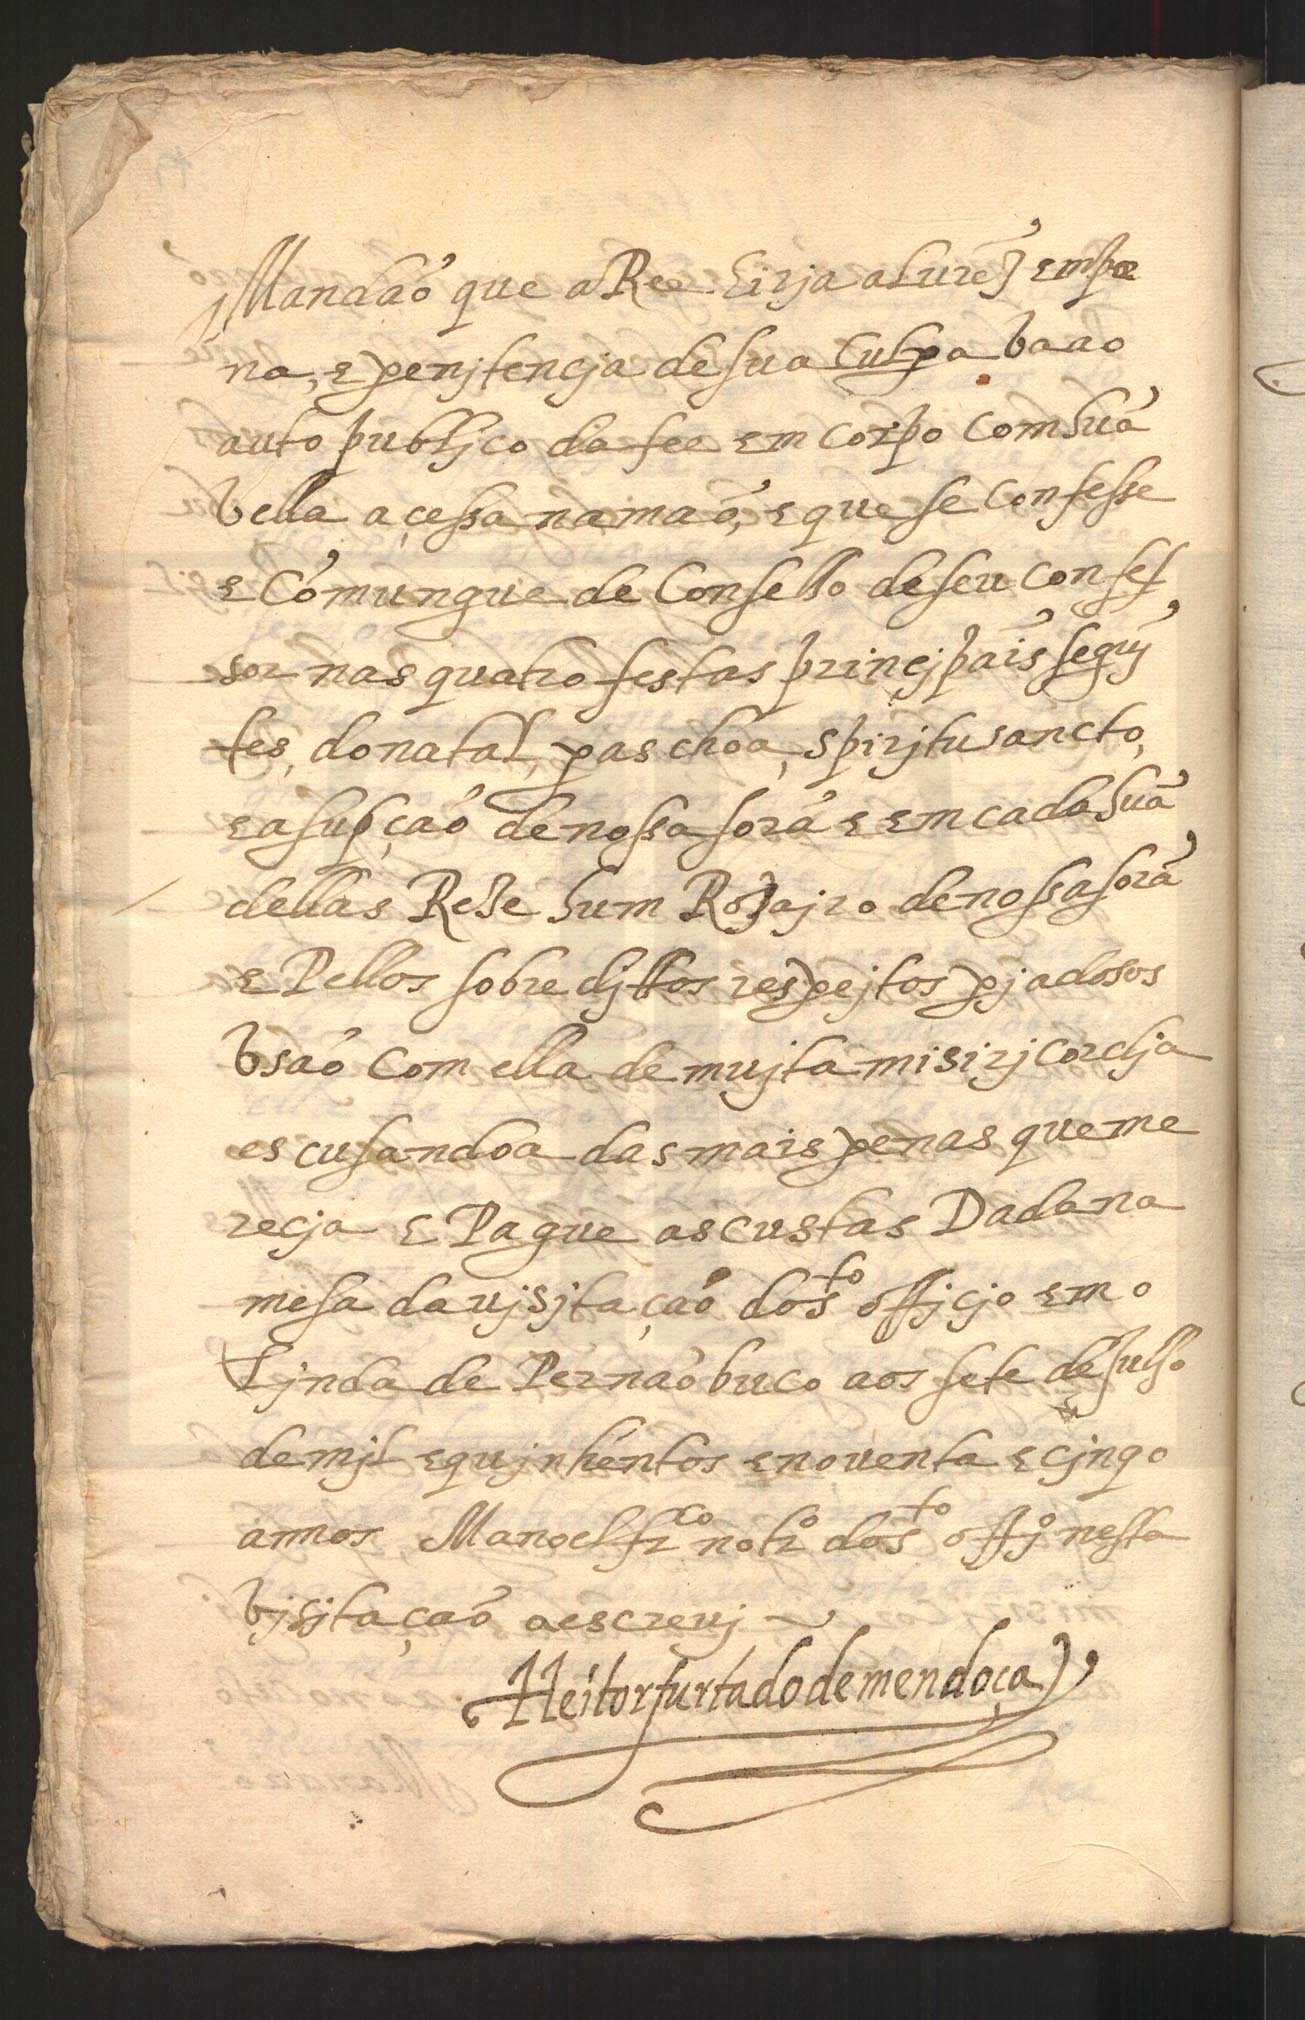 Mandaõ que a Ree Lirja alurez em pe
na, e penjtencja de sua culpa vaa ao
auto publjco da fee em corpo com huã
vella açessa na maõ, e que se confesse
e comungue de conselho de seu confes
sor nas quatro festas princjpais seguĩ
tes, do natal, paschoa, spirjtu sancto,
e asupçaõ de nossa sorã e em cada huã
dellas Reze hum Rozajro de nossa sorã
e Pellos sobredjttos respejtos pjadosos
Vsaõ com ella de mujta misirjcordja
escusandoa das mais penas que me
recja e Pague as custas Dada na
mesa da vjsjtaçaõ do sto officjo em o
Ljnda de Pernaõbuco aos sete de Julho
de mjl e qujnhentos e noventa e cjnqo
annos Manoel frco notro do sto offjo nesta
Vjsjtaçaõ a escrevj
Heitor furtado de mendoça